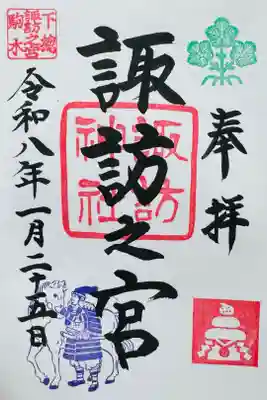 奉拝
諏訪之宮
諏訪神社
下総
諏訪之宮
駒木
令和八年一月二十五日